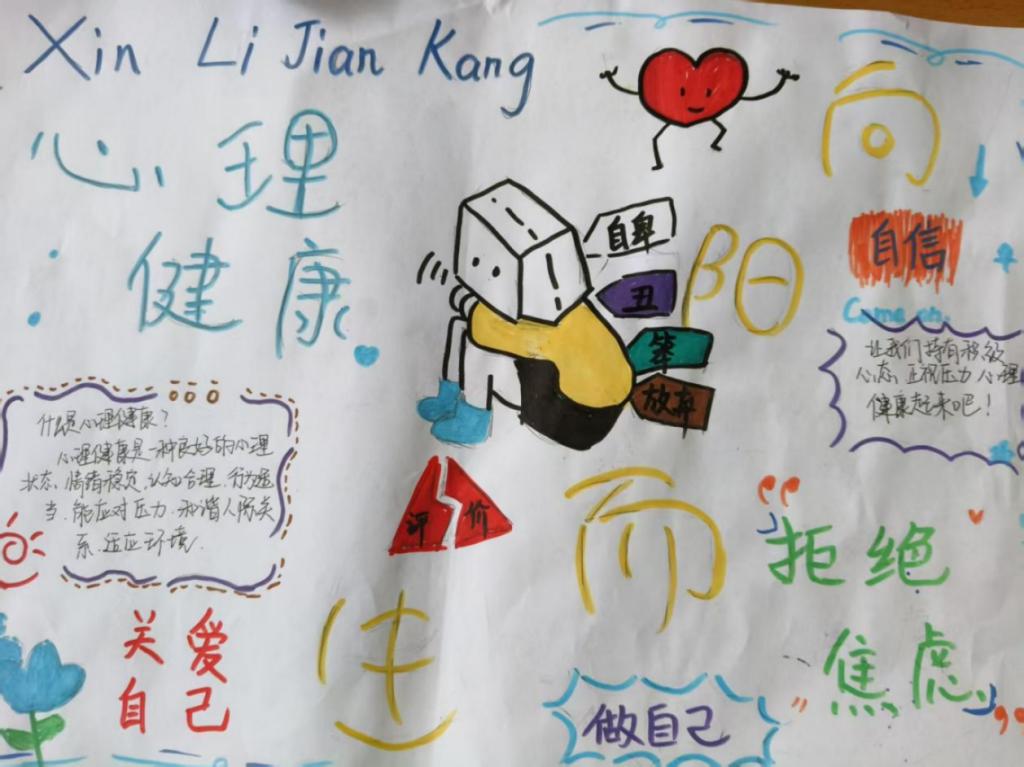 Xin Li Jian Kang
心理
健康
向
阳
而
生
自卑
丑
笨
放弃
评价
自信
Come on.
让我们持有积极
心态,正视压力,心理
健康起来吧!
什么是心理健康?
心理健康是一种良好的心理
状态,情绪稳定,认知合理,行为适
当,能应对压力,和谐人际关
系,适应环境.
关爱
自己
做自己
“拒绝
焦虑”